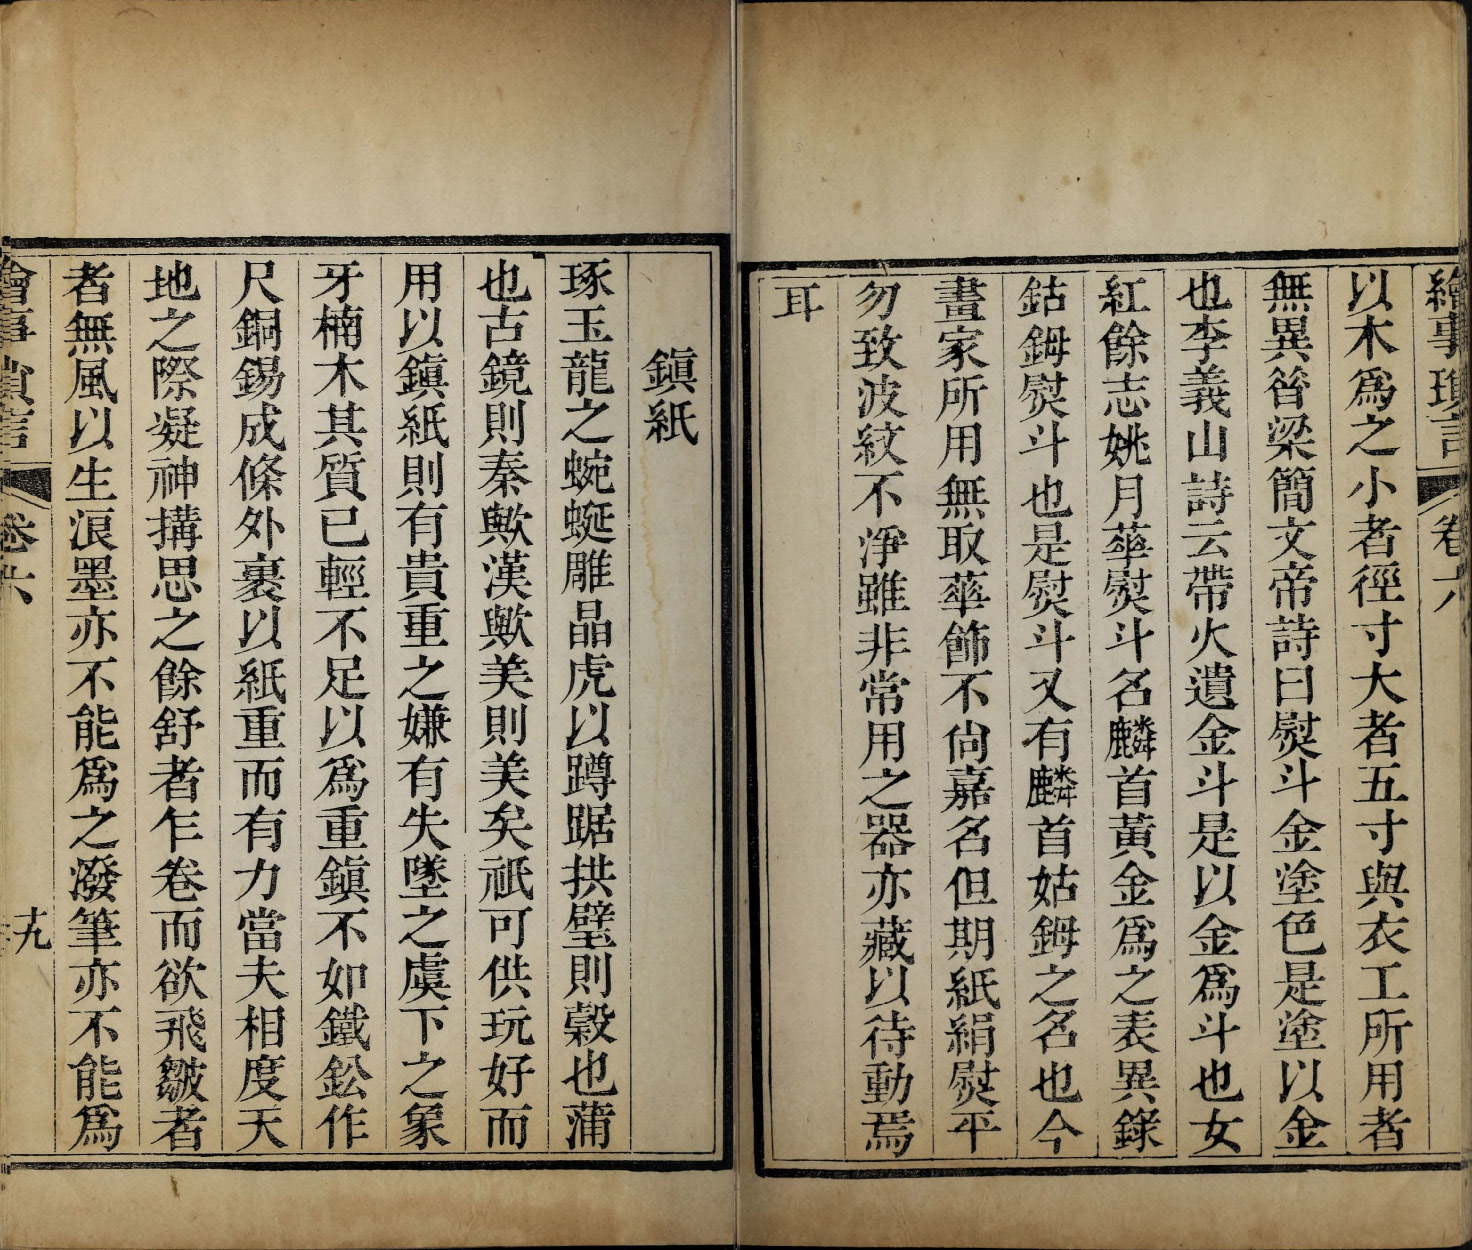 繪事瑣言 卷六
以木爲之小者徑寸大者五寸與衣工所用者
無異晉梁簡文帝詩曰熨斗金塗色是塗以金
也李義山詩云帶火遺金斗是以金爲斗也女
紅餘志姚月華熨斗名麟首黃金爲之表異錄
鈷鉧熨斗也是熨斗又有麟首姑鉧之名也今
畫家所用無取華飾不尙嘉名但期紙絹熨平
勿致波紋不淨雖非常用之器亦藏以待動焉
耳
鎭紙
琢玉龍之蜿蜒雕晶虎以蹲踞拱璧則穀也蒲
也古鏡則秦歟漢歟美則美矣祇可供玩好而
用以鎭紙則有貴重之嫌有失墜之虞下之象
牙楠木其質已輕不足以爲重鎭不如鐵鈆作
尺銅錫成條外裹以紙重而有力當夫相度天
地之際凝神搆思之餘舒者乍卷而欲飛皺者
者無風以生浪墨亦不能爲之潑筆亦不能爲
繪事瑣言 卷六 十九